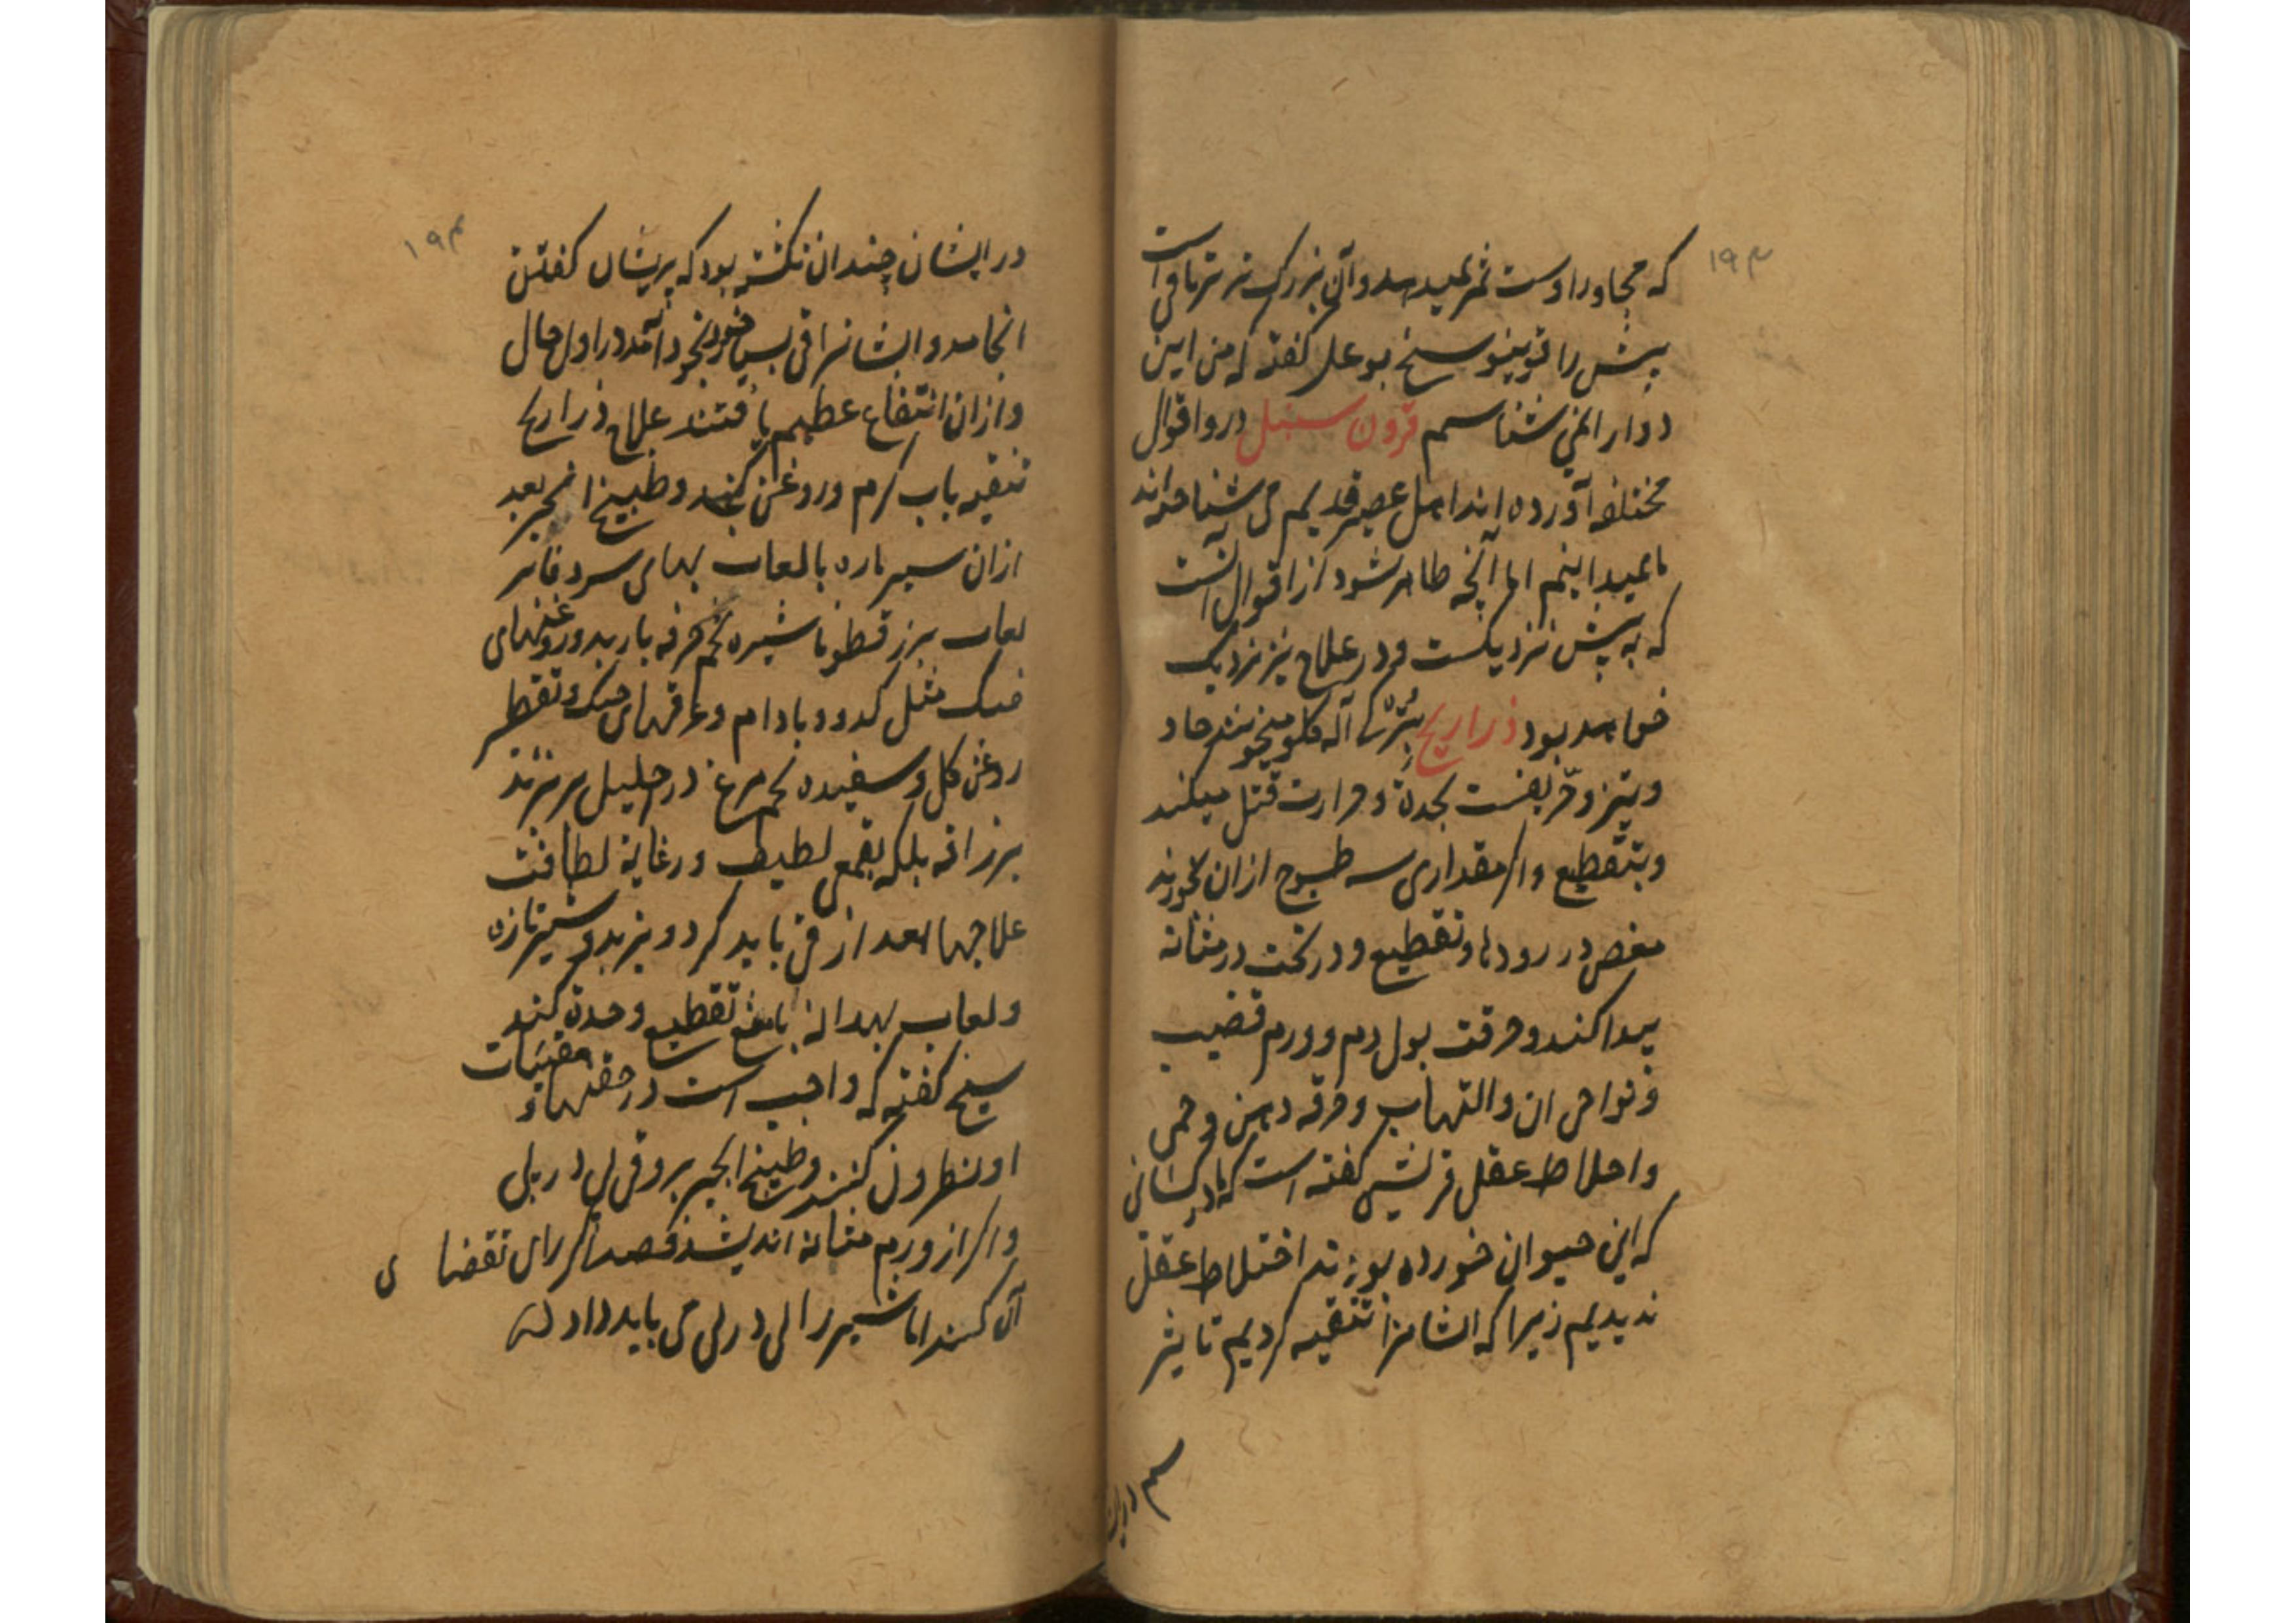 ۱۹۳
که مجاور اوست ثمر نمیدهد و آن بزرک تر تریاقی است
بیش را قوینیو سیخ بو علی کفته که من این
دوار المی شناسم قرون سنبل درو اقوال
مختلفه آورده اند اهل عصر قدیم می شناخته اند
ما نمیدانیم اما آنچه ظاهر شود از اقوال آنست
که به بیش نزدیکست و در علاج نیز نزدیک
خواهد بود ذراریح آله کلو میخوبیند حاد
و تیز و حریفست بحدة و حرارت قتل میکند
و بتقطیع واکر مقداری سه طسوج ازان بخورند
مغص در رودها و تقطیع و در تحت در مثانه
پیدا کند و حرقت بول دم و ورم قضیب
و نواحی ان و التهاب و حرقه دهن و حمی
و اختلاط عقل قرشی کفته است که ما در کسانی
که این حیوان خورده بودند اختلاط عقل
ندیدیم زیرا که ایشانرا تنقیه کردیم تا نیز
سم درایشان
۱۹۴
در ایشان چندان نکشته بود که پریشان کفتن
انجامد و ایشانرا قی بس خود بخود آمد در اول حال
و ازان انتفاع عظیم یافتند علاج ذراریح
تنقیه باب کرم و روغن کنجد و طبیخ انجیر بعد
ازان سیر تازه بالعاب بهای سرد فاتر
لعاب بزر قطونا شیره تخم خرفه بارید و روغنهای
خنک مثل کدو و بادام و عرقهای خنک و تقطیر
روغن کل و سفیده تخم مرغ در احلیل بر نرند
برزاقه بلکه بقمعی لطیف در غایة لطافت
علاجها بعد از قی باید کرد و بزبد و شیر تازه
و لعاب بهدانه مانع تقطیع و حدة کنند
شیخ کفته که واجب است در حقنها و مقیئات
او نطرون کنند و طبیخ انجیر بروقی پی در پی
و اکر از ورم مثانه اندیشند فصد اکر رای تقضا ی
آن کنند اما شیر را پی در پی می باید داد